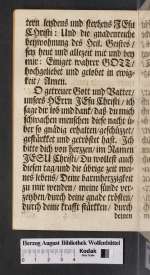 tern leydens und sterbens JEsu
Christi: Und die gnadenreiche
beywohnung des Heil. Geistes/
sey heut und allezeit mit und bey
mir: Einiger wahrer GOTT/
hochgeliebet und gelobet in ewig-
keit/ Amen.
O getreuer Gott und Vatter/
unsers HErrn JEsu Christi/ ich
sage dir lob und danck/ daß du mich
schwachen menschen diese nacht ü-
ber so gnädig erhalten/geschützet/
gestärcket und getröstet hast. Ich
bitte dich von hertzen/ im Namen
JESU Christi/ Du wollest auch
diesen tag/und die übrige zeit mei-
nes lebens/ Deine barmhertzigkeit
zu mir wenden/ meine sünde ver-
zeyhen/durch deine gnade trösten/
durch deine krafft stärcken/ durch
deinen
Herzog August Bibliothek Wolfenbüttel
Kodak